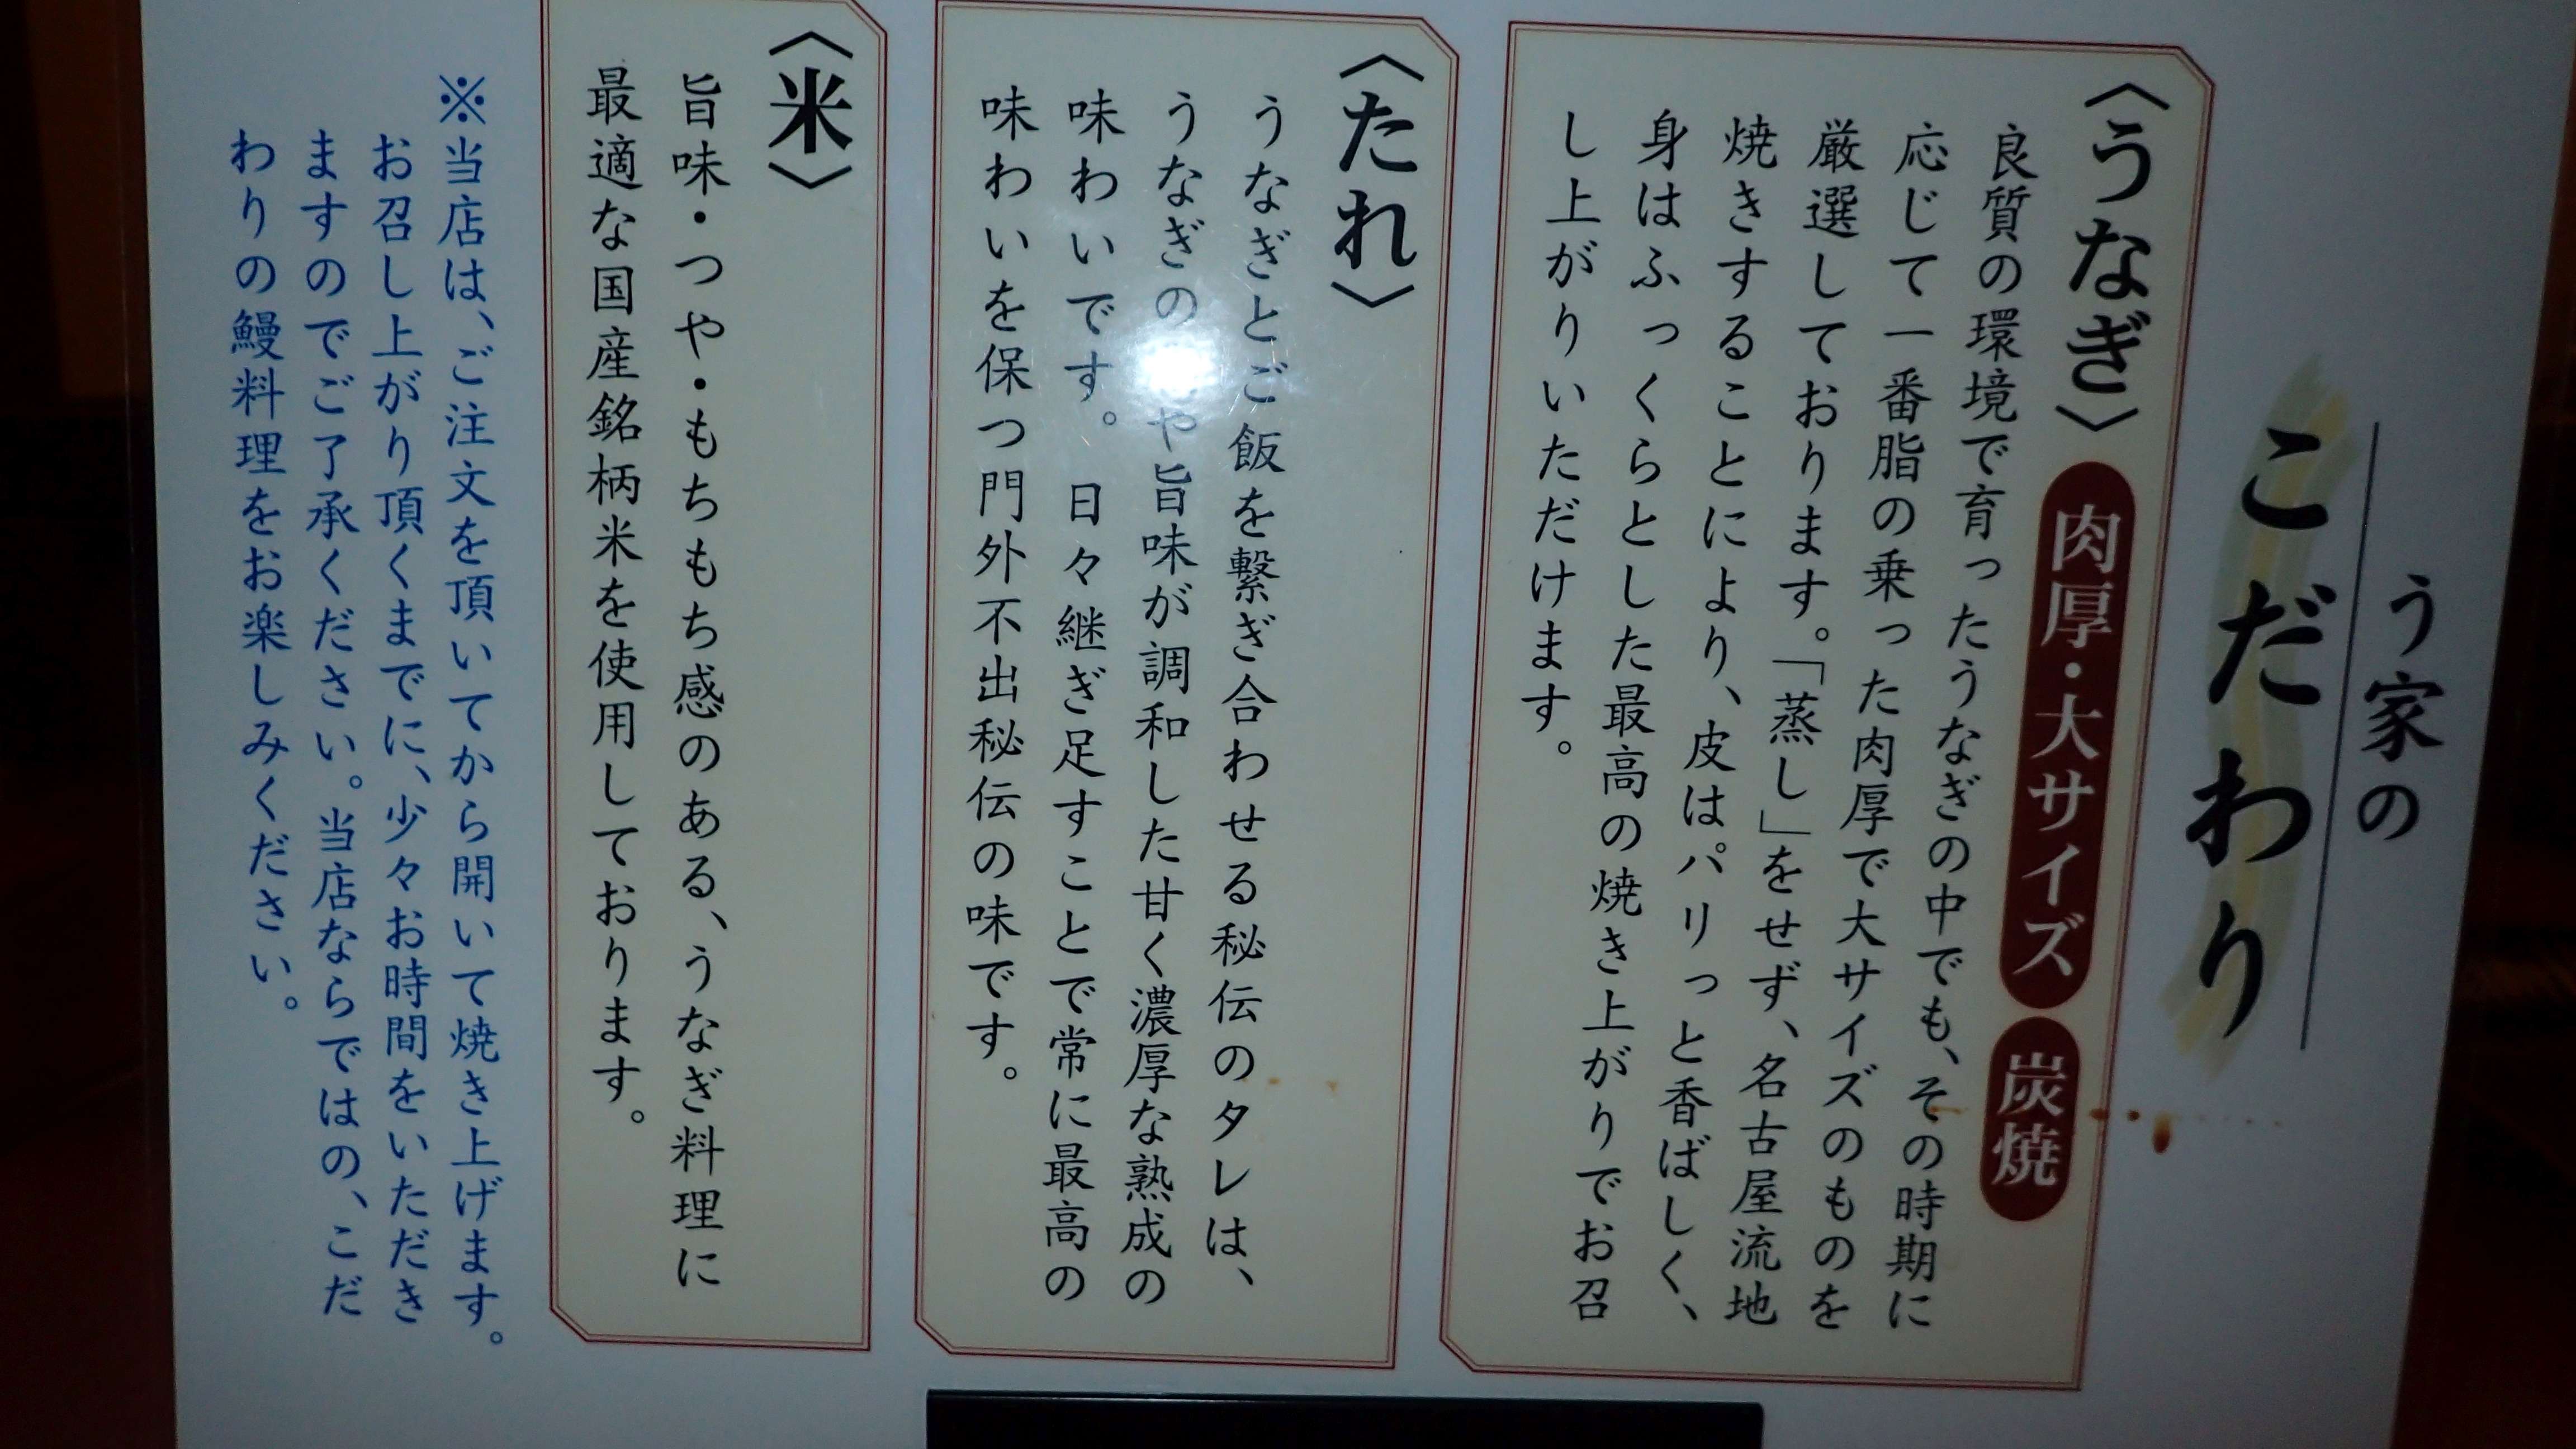 う家の
こだわり
〈うなぎ〉 肉厚・大サイズ 炭焼
良質の環境で育ったうなぎの中でも、その時期に
応じて一番脂の乗った肉厚で大サイズのものを
厳選しております。「蒸し」をせず、名古屋流地
焼きすることにより、皮はパリっと香ばしく、
身はふっくらとした最高の焼き上がりでお召
し上がりいただけます。
〈たれ〉
うなぎとご飯を繋ぎ合わせる秘伝のタレは、
うなぎの や旨味が調和した甘く濃厚な熟成の
味わいです。日々継ぎ足すことで常に最高の
味わいを保つ門外不出秘伝の味です。
〈米〉
旨味・つや・もちもち感のある、うなぎ料理に
最適な国産銘柄米を使用しております。
※当店は、ご注文を頂いてから開いて焼き上げます。
お召し上がり頂くまでに、少々お時間をいただき
ますのでご了承ください。当店ならではの、こだ
わりの鰻料理をお楽しみください。